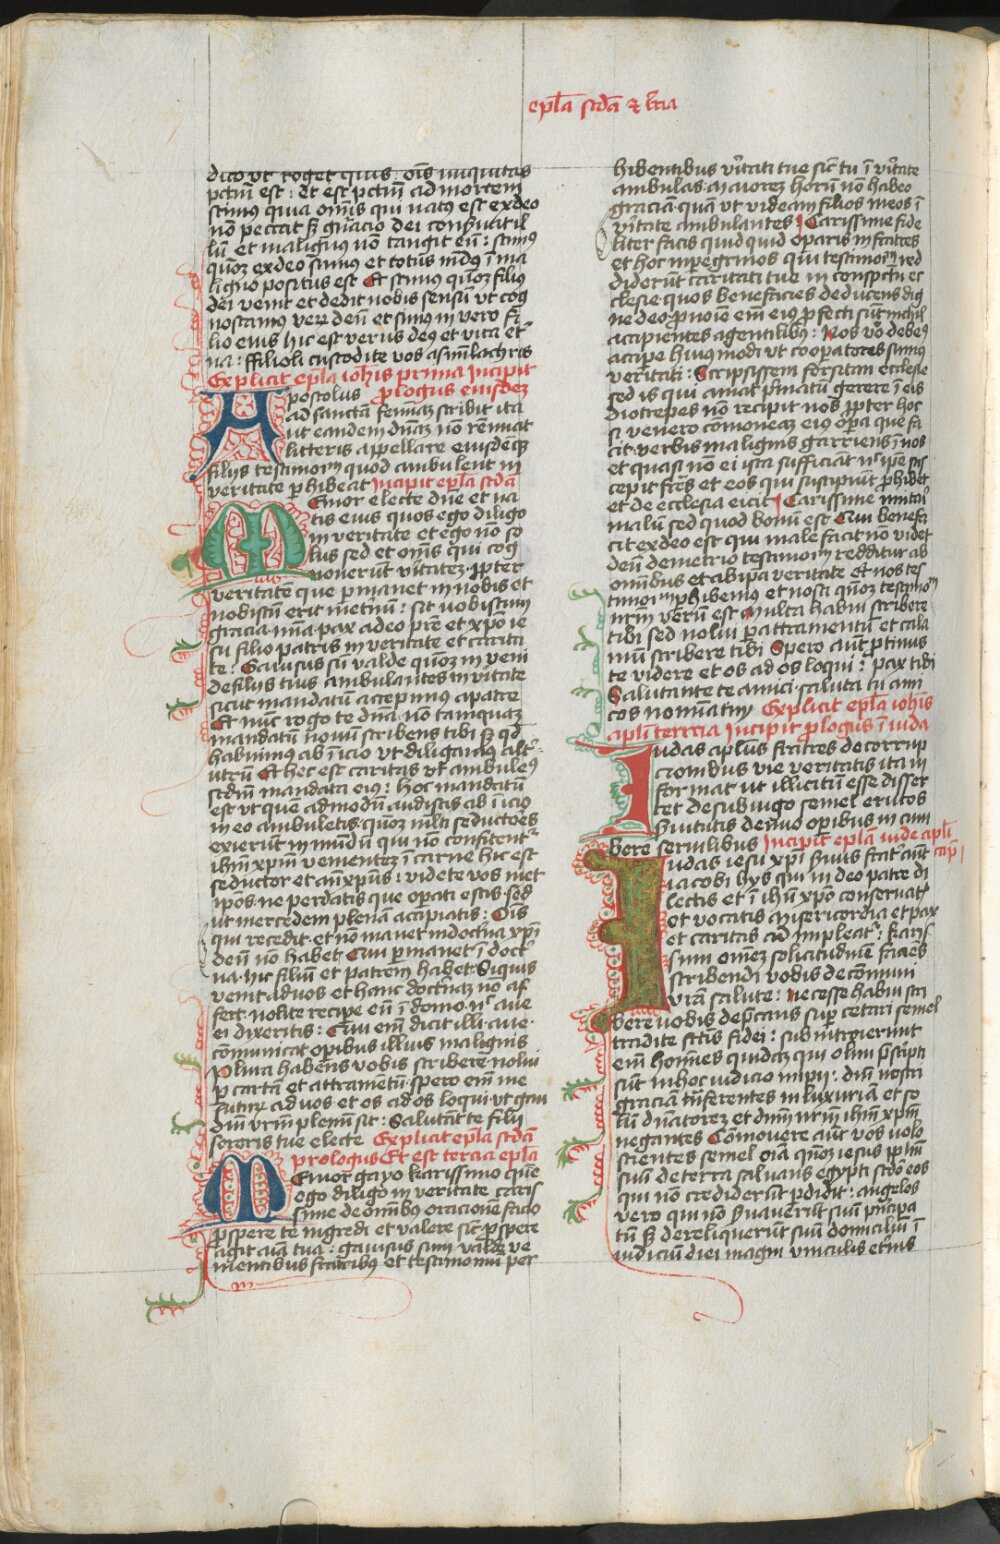 epl̄a scd̄a ⁊ tr̄cia
dico vt roget quis . oīs iniquitas
pctm̄ est : Et est pctm̄ ad mortem
scimꝰ quia om̄is qui natꝰ est ex deo
non peccat sꝫ gn̄acio dei conẜuat il
lū et malignꝰ non tangit eū : scimꝰ
qm̄ ex deo sumꝰ et totus mūdꝰ ī ma
ligno positus est Et scimꝰ qm̄ filiꝰ
dei venit et dedit nobis sensū vt cog
noscamꝰ verū deū et simꝰ in vero fi
lio eius hic est verus deꝰ et vita et̄
na : ffilioli custodite vos a simlachris
Explicit epl̄a ioh̄is prima Incipit
plogus eiusdeꝫ
Apostolus
ad sanctā feminaꝫ scribit ita
ut eandem dn̄aꝫ nō rēnuat
litteris appellare eiusdēqꝫ
filijs testimoīm quod ambulent in
veritate ꝑhibeat Incipit epl̄a scd̄a
Senior electe dn̄e et na
tis eius quos ego diligo
in veritate et ego nō so
lus sed et om̄s qui cog
nouerūt v̄itateꝫ . ꝓpter
veritatem que ꝑmanet in nobis et
nobiscū erit in et̄nū : sit vobiscum
gracia mīa pax a deo pr̄e et xp̄o ie
su filio patris in veritate et carita
te : Gauisus sū valde qm̄ inveni
de filijs tuis ambulantes in v̄itate
sicut mandatū accepimus a patre
Et nūc rogo te dn̄a nō tamquaꝫ
mandatū nouū scribens tibi sꝫ qd̄
habuimus ab īicio vt diligamꝰ alt̄
utrū Et hec est caritas vt ambulemꝰ
scdm̄ mandata eiꝰ : hoc mandatū
est vt quē admodū audistis ab īicio
in eo ambuletis qm̄ m̄lti seductores
exierūt in mundū qui nō confitent̄
ih̄m xp̄m venienteꝫ ī carnē hic est
seductor et an̄xp̄us : videte vos met
ip̄os ne perdatis que opati estis sed
ut mercedem plenā accipiatis : Oīs
qui recedit et nō manet in doctna xp̄i
deū nō habet Qui ꝑmanet ī doct̄
na hic filiū et patrem habet Siquis
venit ad vos et hanc doctnaꝫ nō af
fert nolite recipe eū ī domo nᶜ aue
ei dixeritis : Qui em̄ dicit illi aue
cōmunicat opibus illius malignis
Plura habens vobis scribere nolui
ꝑ cartā et attramētū spero em̄ me
futuꝝ ad vos et os ad os loqui vt gau
diū vr̄m plenū sit : Salutāt te filij
sororis tue electe Explicit epl̄a scd̄a
prologus Et est tercia epl̄a
Senior gayo karissimo quē
ego diligo in veritate caris
sime de om̄ibꝰ oracionē facio
ꝓspere te ingredi et valere sic̄ ꝓspere
agit aīa tua : gauisus sum valde ve
nientibus fratribꝰ et testimoniū per
hibentibus v̄itati tue sic̄ tu ī v̄itate
ambulas Maioreꝫ horū nō habeo
graciā quā vt videam filios meos ī
v̄itate ambulantes Carissime fide
liter facis quidquid operaris in fratres
et hoc in peregrinos qui testimoīm red
diderūt caritati tue in conspectu ec
clesie quos benefacies deducens dig
ne deo ꝓ noīe em̄ eiꝰ ꝓfecti sūt nichil
accipientes a gentilibꝰ : Nos vō debemꝰ
accipe huiusmodi vt cooperatores simus
veritati : Scripsissem forsitan ecclesie
sed is qui amat p̄matū gerere ī eis
diotrepes nō recipit nos ꝓpter hoc
si venero cōmoneaꝫ eiꝰ opa que fa
cit verbis malignis garriens ī nos
et quasi nō ei ista sufficiāt nᶜ ip̄e sus
cepit frēs et eos qui suscipiūt ꝓhibet
et de ecclesia eicit Carissime imitari
malū sed quod bonū est Qui benefa
cit ex deo est qui male facit nō videt
deū demetrio testimoīm redditur ab
omnibus et ab ip̄a veritate et nos tes
timoīm ꝑhibemꝰ et nosti qm̄ testimoīm
nr̄m verū est Multa habui scribere
tibi sed nolui ꝑ attramentū et cala
mū scribere tibi Spero aūt ꝓtinus
te videre et os ad os loqui : pax tibi
Salutant te amici saluta tu ami
cos nominatim Explicit epl̄a ioh̄is
apl̄i tercia Incipit prologus ī iuda
Iudas apl̄us fratres de corrup
cionibus vie veritatis ita in
format ut illicitū esse disser
tet de sub iugo semel erutos
ẜuitutis denuo opibus in cum
bere seruilibus Incipit epl̄am iude apl̄i
capᵐ I
Iudas iesu xp̄i ẜuus frater aūt
iacobi hijs qui in deo patre di
lectis et ī ih̄u xp̄o conseruatꝭ
et vocatis misericordia et pax
et caritas ad impleat̄ : karis
simi omneꝫ solicitudinē faciēs
scribendi vobis de cōmuni
vr̄a salute : necesse habui scri
bere vobis dep̄cans suꝑ certari semel
tradite sctīs fidei : subintroierunt
em̄ homīes quidaꝫ qui olim ꝑscripti
sūt in hoc iudicio impij : dn̄i nostri
graciā tn̄sferentes in luxuriā et so
lū dn̄atoreꝫ et dn̄m nr̄m ih̄m xp̄m
negantes Cōmouere aūt vos volo
scientes semel oīa qm̄ iesus pplm̄
suū de terra saluans egypti scdo eos
qui nō crediderūt ꝑdidit : angelos
vero qui nō ẜuauerūt suū pncipa
tū sꝫ dereliquerūt suū domiciliū ī
iudiciū diei magni vinculis et̄nis